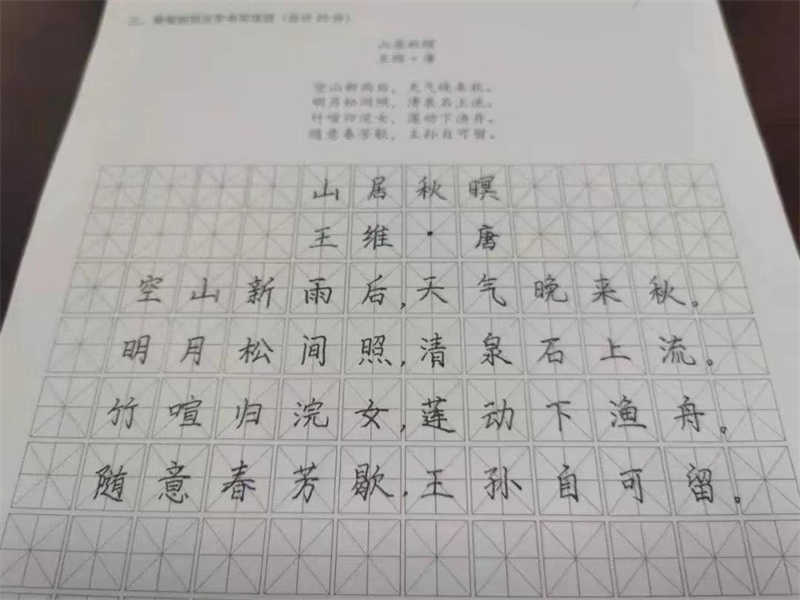 山居秋暝
王维·唐
空山新雨后，天气晚来秋。
明月松间照，清泉石上流。
竹喧归浣女，莲动下渔舟。
随意春芳歇，王孙自可留。
山居秋暝
王维·唐
空山新雨后,天气晚来秋。
明月松间照,清泉石上流。
竹喧归浣女,莲动下渔舟。
随意春芳歇,王孙自可留。